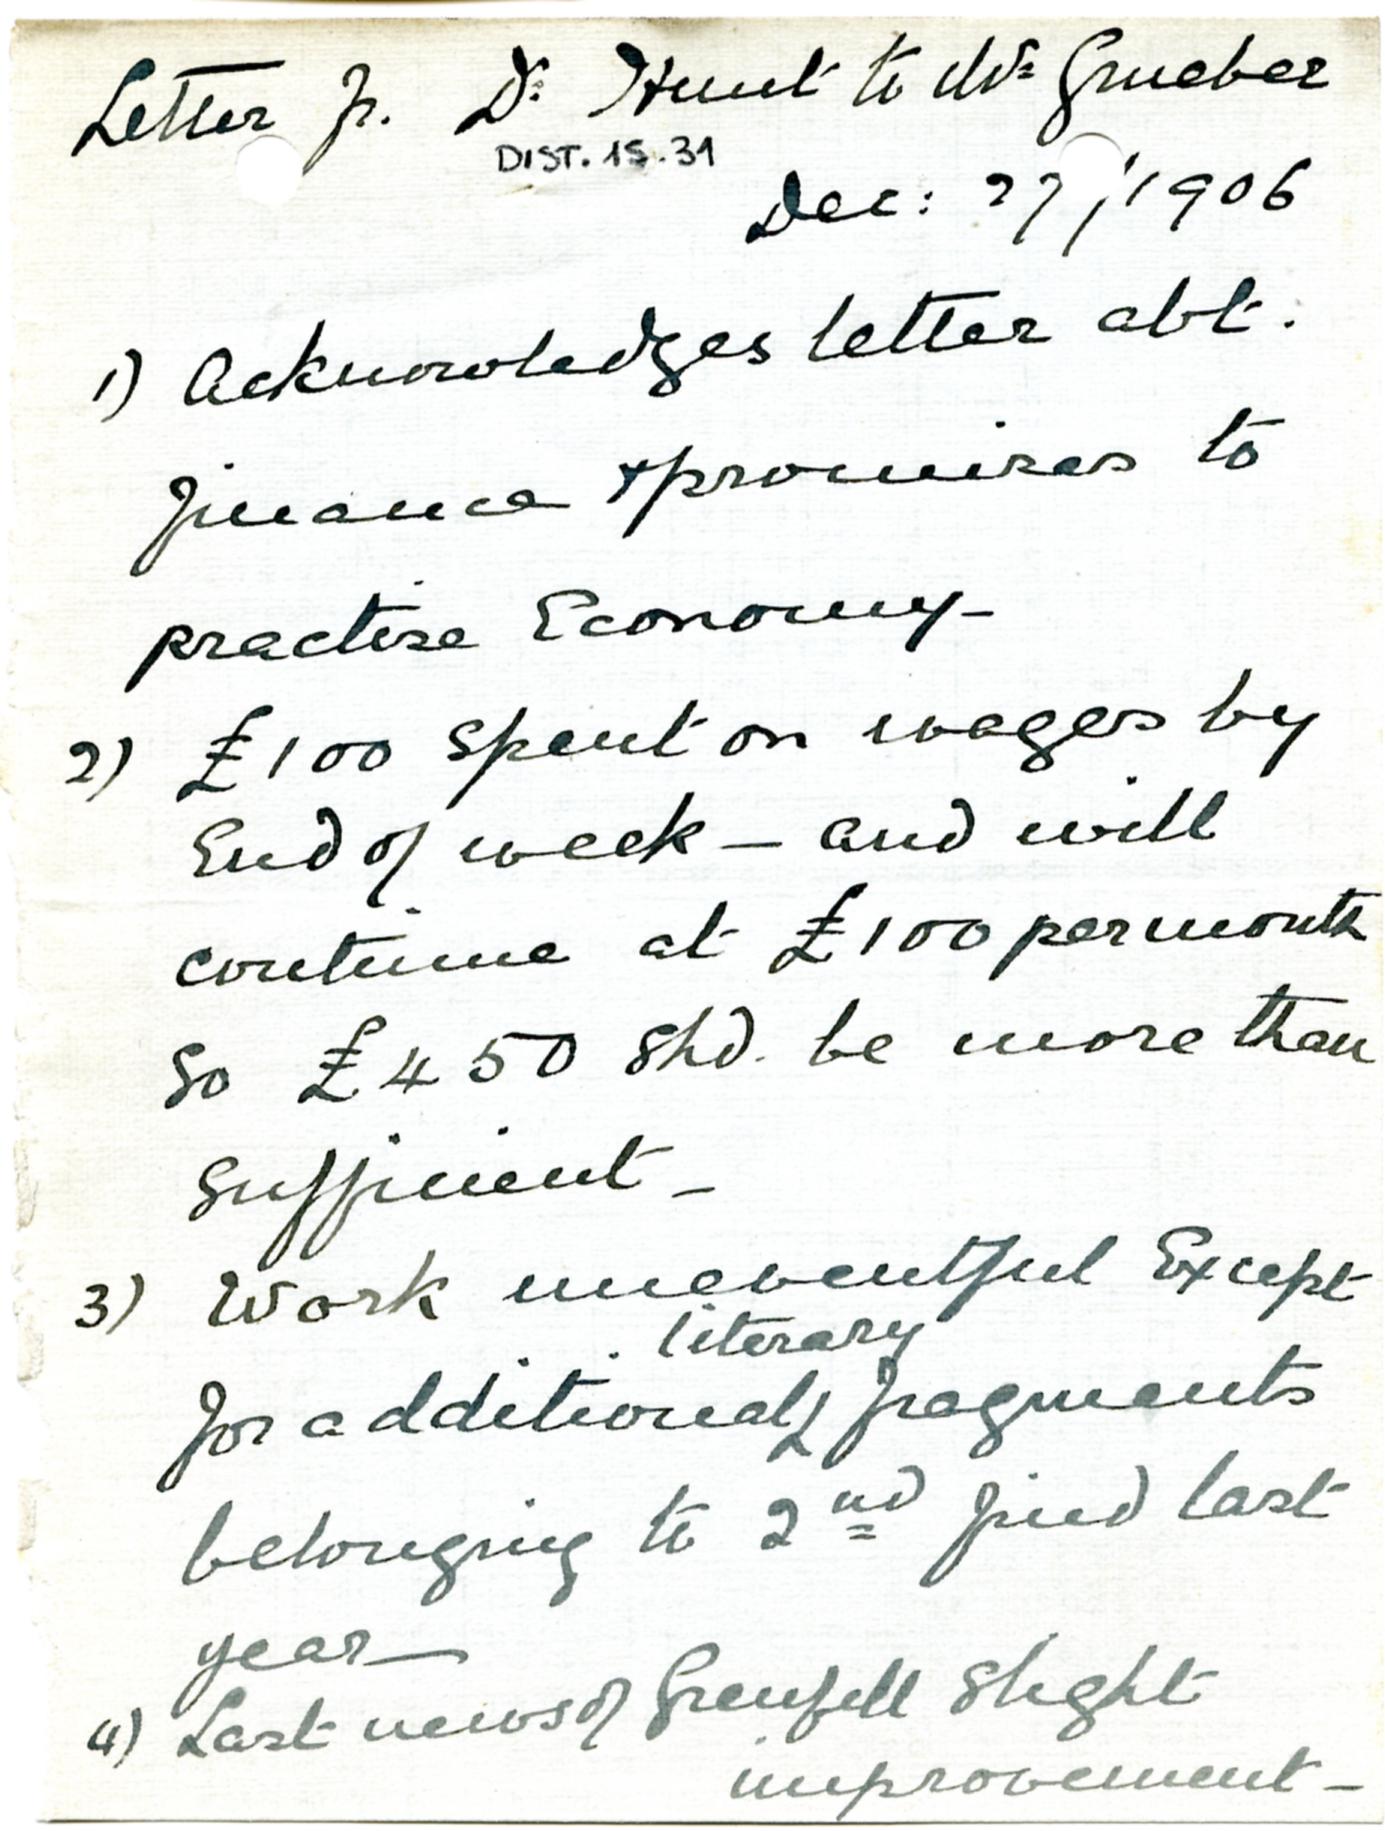 Letter fr. Dr Hunt to Mr Grueber
DIST. 15.31
Dec: 27/1906
1) Acknowledges letter abt.
finance & promises to
practise Economy–
2) £100 spent on wages by
End of week – and will
continue at £100 per month
So £450 shd. be more than
Sufficient –
3) Work uneventful Except
literary
for additional fragments
belonging to 2nd find last
year –
4) Last news of Grenfell slight
improvement –